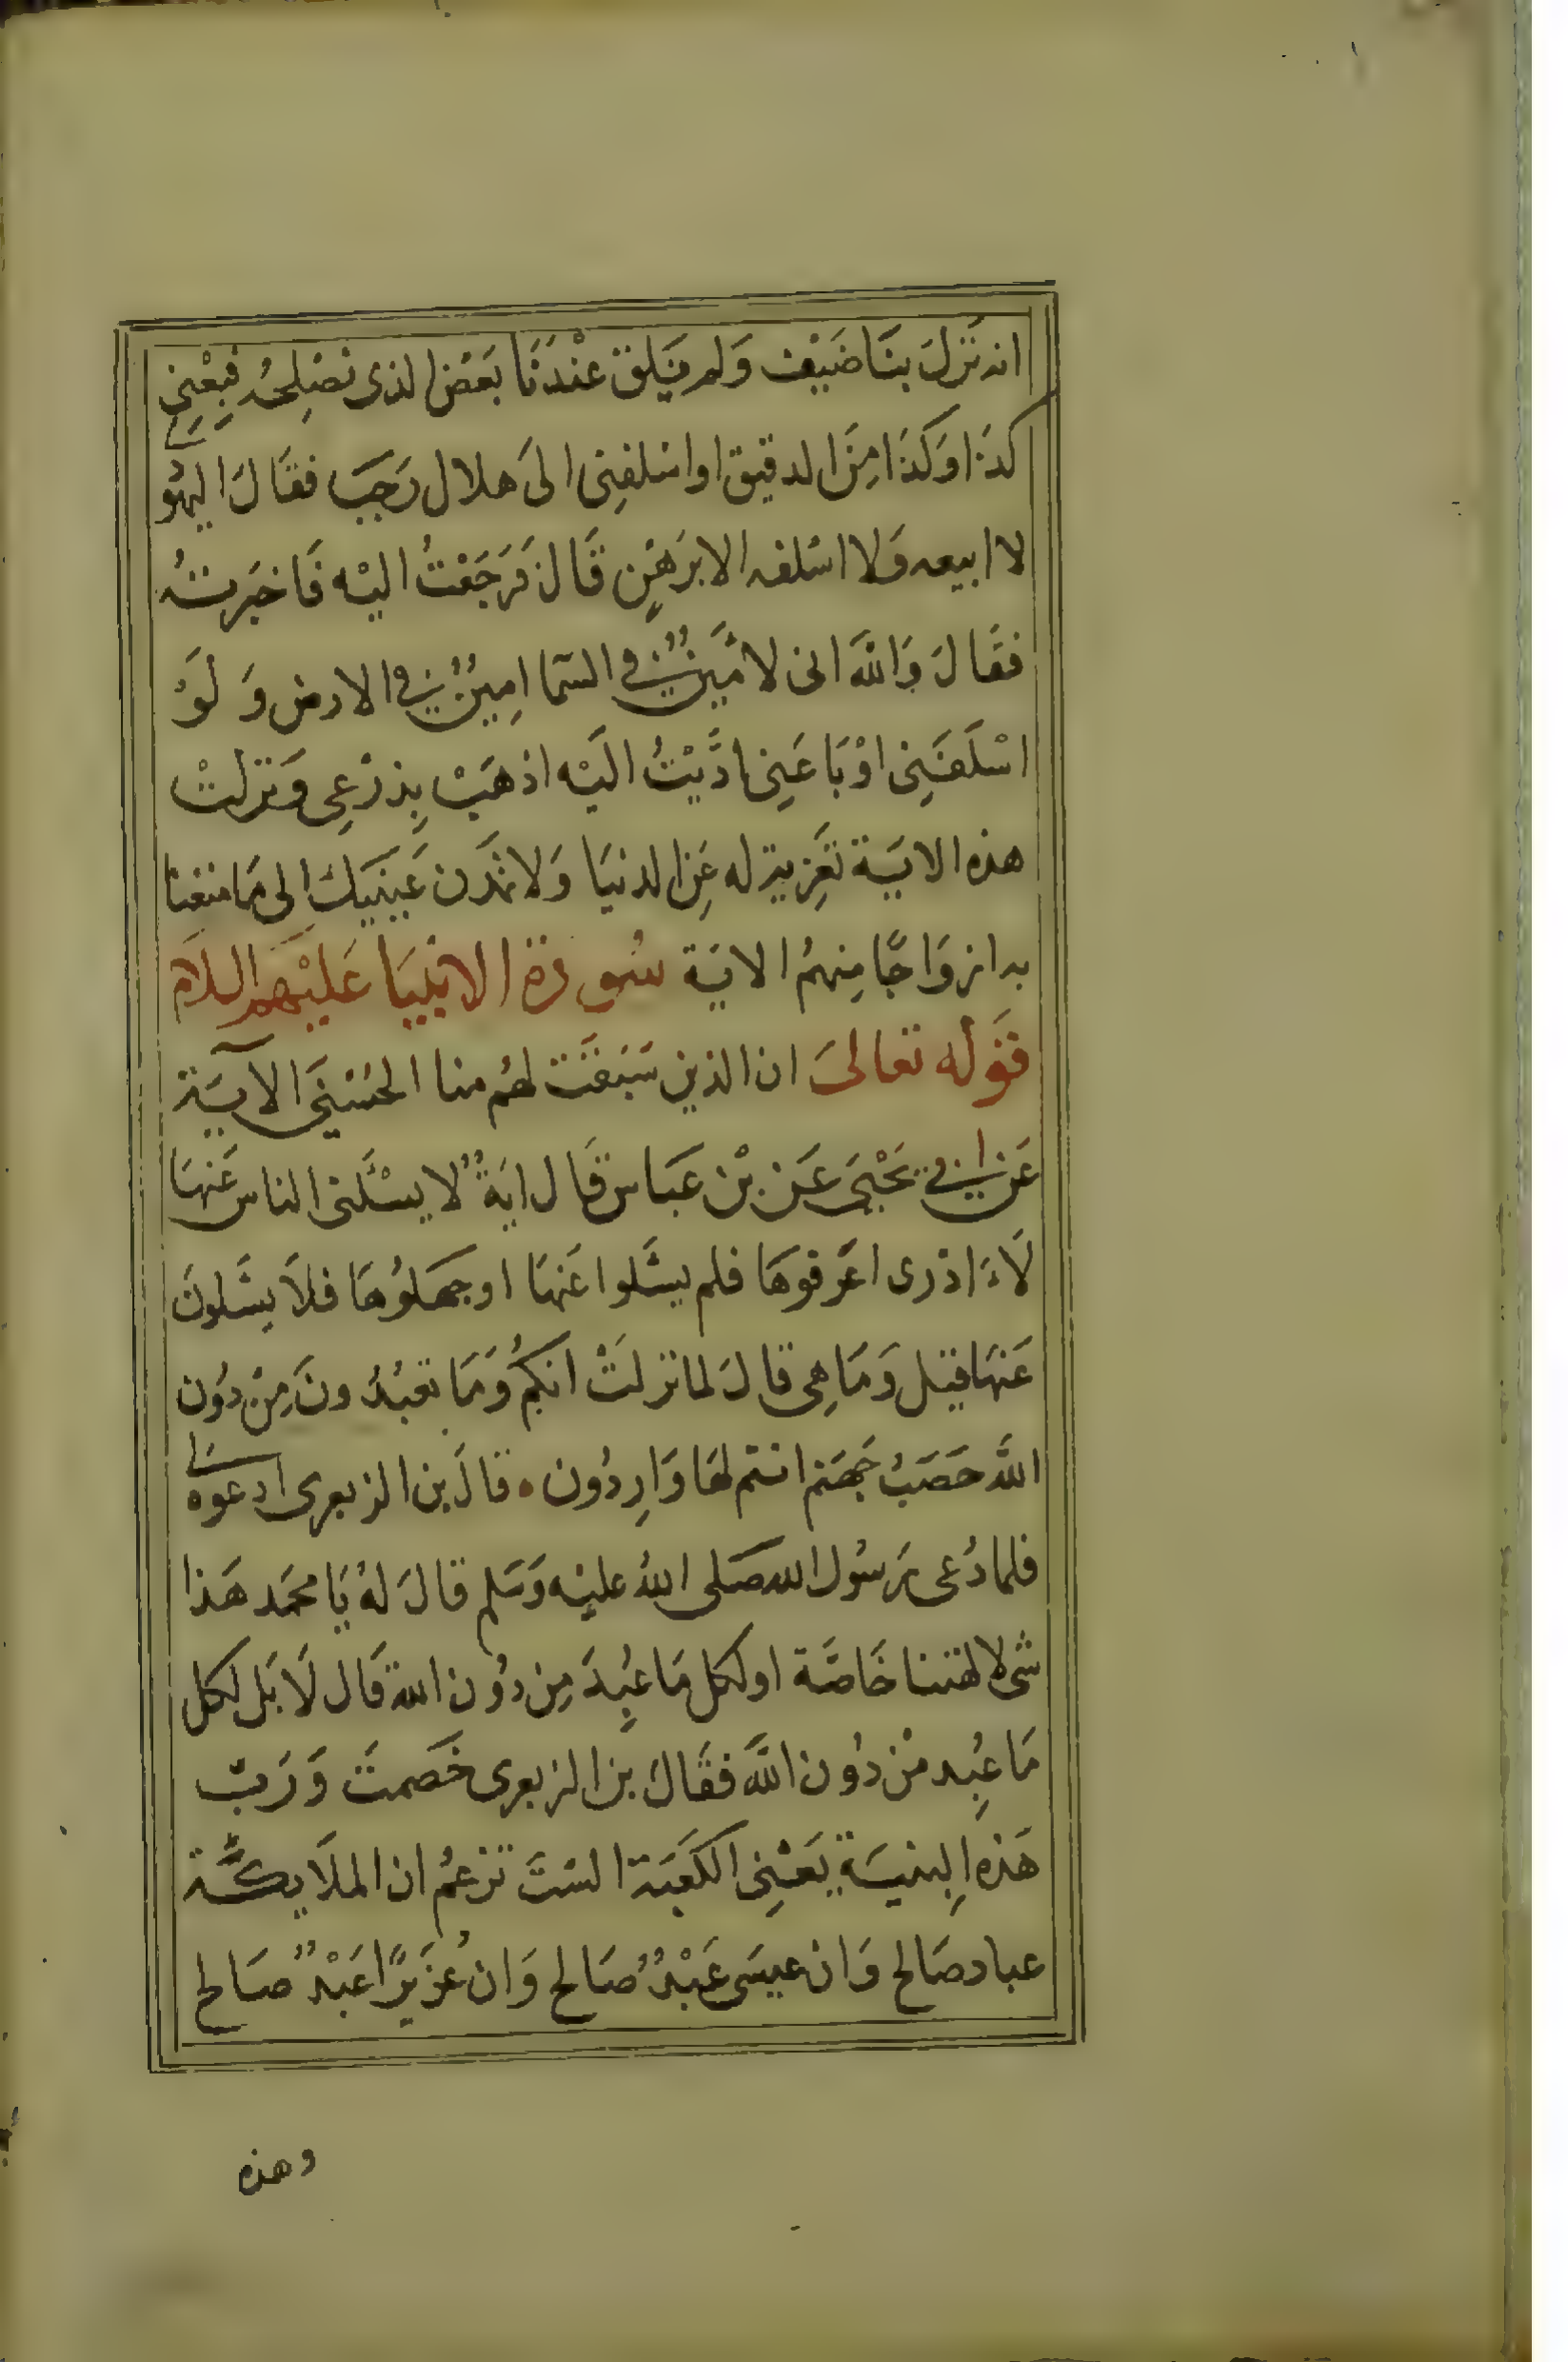 انه نَزلَ بنَا ضَيْف وَلم يَلق عنْدَنَا بَعَض الذى نصْلِحُه فبِعْنِى
كذَا وَكَذَا مِنَ الدقيق او اسْلفنِى الىَ هلال رَجَب فقَالَ اليهُودى
لا ابيعه وَلا اسْلفه الا برَهْنٍ قَال فَرَجَعْتُ اليْه فَاخبَرتهُ
فقَالَ وَاللَّه انى لامَّينٌ فى السّمَا امِينٌ فى الارض وَلَوْ
اسْلَفَنِى اوْبَاعَنِى ادَّيْتُ الَيْه اذهَبْ بِدِرْعِى وَنزلتْ
هذه الايَة تعَزِية له عَنِ الدنيَا وَلا تمدَّن عَينَيكَ الى مَا متعنا
به ازوَاجًا مِنهمُ الايَة سُورَة الانبيَا عَليْهم السلام
قَوله تعَالىَ ان الذين سَبَقَت لهُم منا الحُسْنىَ الآيَة
عَن ابى يَحْيىَ عَن بْن عَبَاس قَال ايَةٌ لا يسْئَلنى الناس عَنهَا
لَاءَ ادْرى اعَرفوهَا فلم يسْئَلوا عَنهَا او جهَلوُهَا فلاَ يسْئَلونَ
عَنهَا قيل وَمَا هِى قالَ لما نزلَتْ انكُم وَمَا تعبُدونَ مِنْ دوُن
اللَّه حَصَبُ جَهَنم انتم لهَا وَارِدُون ٠ قالَ بن الزبعرى ادعوه لى
فلما دُعى رَسُول الله صَلى اللهُ عليْه وَسَلم قالَ لهُ يَا محمَد هَذا
شى لالهتنا خَاصَّة او لكل مَا عُبِدَ مِن دُون اللّه قَال لَا بَل لكل
مَا عُبِد مْن دُون اللَّه فقَالَ بن الزبعرى خَصمتَ وَرَبّ
هَذه البنيَة يَعْنِى الكَعْبَة السْتَ تزعمُ ان الملَايكَّة
عباد صَالح وَان عيسَى عَبْدٌ صَالح وَان عُزيْرًا عَبْدٌ صَالح
وهذه